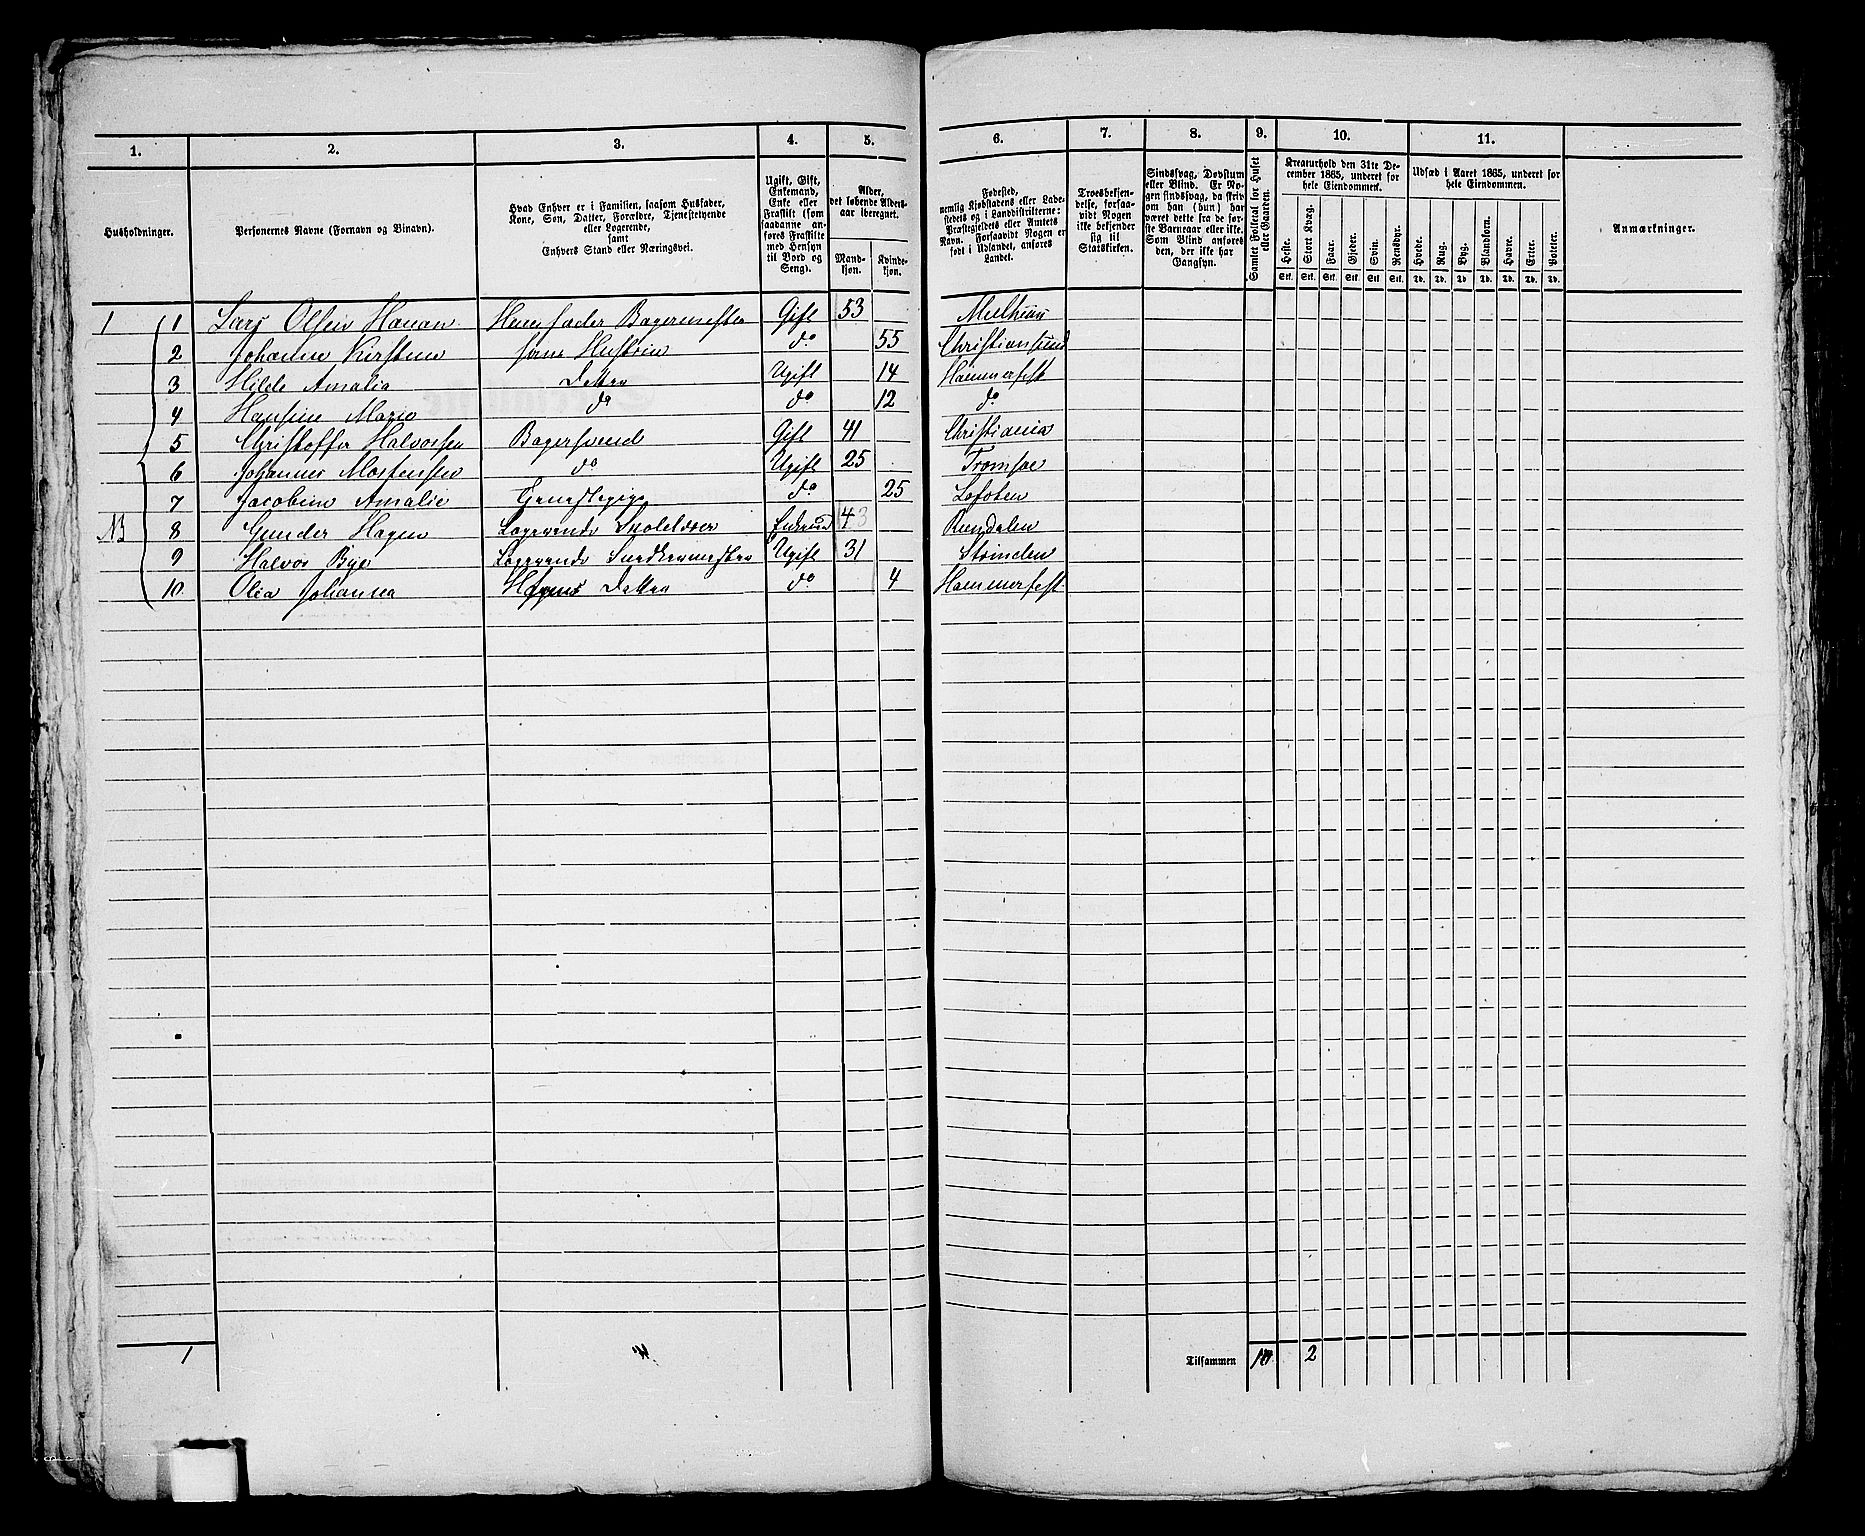 1. 2. 3. 4. 5. 6. 7. 8. 9. 10. 11.
Husholdninger.
Personernes Navne (Fornavn og Binavn).
Hvad Enhver er i Familien, saasom Husfader,
Kone, Søn, Datter, Forældre, Tjenestetyende
eller Logerende,
samt
Enhvers Stand eller Næringsvei.
Ugift, Gift,
Enkemand,
Enke eller
Fraskilt (som
saadanne an-
føres Fraskilte
med Hensyn
til Bord og
Seng).
Alder,
det løbende Alders-
aar iberegnet.
Mand-
kjøn.
Kvinde-
kjøn.
Fødested,
nemlig Kjøbstadens eller Lade-
stedets og i Landdistrikterne:
Præstegjeldets eller Amtets
Navn. Forsaavidt Nogen er
født i Udlandet, anføres
Landet.
Troesbekjen-
delse, forsaa-
vidt Nogen
ikke bekjender
sig til
Statskirken.
Sindssvag, Døvstum
eller Blind. Er No-
gen sindssvag, da skriv
om han (hun) har
været dette fra de før-
ste Barneaar eller ikke.
Som Blind anføres
den, der ikke har
Gangsyn.
Samlet Folketal for Huset
eller Gaarden.
Kreaturhold den 31te De-
cember 1865, underet for
hele Eiendommen.
Heste. Stort Kvæg. Faar. Gjeder. Svin. Rensdyr.
Stk. Stk. Stk. Stk. Stk. Stk.
Udsæd i Aaret 1865, underet for
hele Eiendommen.
Hvede. Rug. Byg. Blandkorn. Havre. Erter. Poteter.
Td. Td. Td. Td. Td. Td. Td.
Anmærkninger.
1 1 Lars Olsen Husfader Bagermester Gift 53
2 Johanne Kirstine hans Hustru do 55 Christiansund
3 Hilde Amalia Datter Ugift 14 Hammerfest
4 Hansine Marie do do 12 do
5 Christoffer Halvorsen Bagersvend Gift 41 Christiania
6 Johannes Mortensen do Ugift 25 Tromsøe
7 Jacobine Amalie Tjenestepige do 25 Lofoten
8 Gunder Hagen Logerende Skolelærer Enkem 43
9 Halvor Bye Logerende Snedkermester Ugift 31 Strinden
10 Olea Johanna Hagens Datter do 4 Hammerfest
1 Tilsammen 10 2